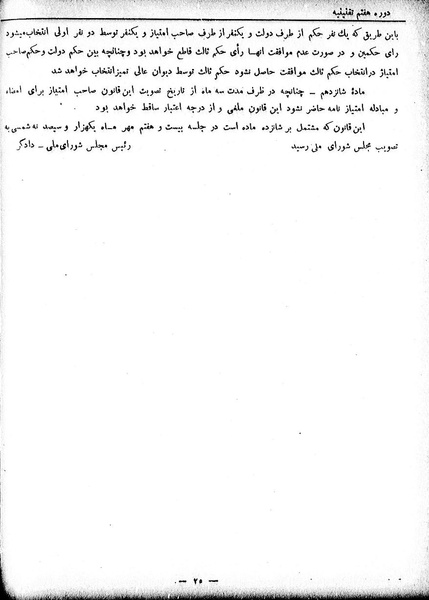 دوره هفتم تقنینیه
باین طریق که یك نفر حکم از طرف دولت و یکنفر از طرف صاحب امتیاز و یکنفر توسط دو نفر اولی انتخاب میشود
رای حکمین و در صورت عدم موافقت آنها رأی حکم ثالث قاطع خواهد بود و چنانچه بین حکم دولت و حکم صاحب
امتیاز در انتخاب حکم ثالث موافقت حاصل نشود حکم ثالث توسط دیوان عالی تمیز انتخاب خواهد شد
مادۀ شانزدهم – چنانچه در ظرف مدت سه ماه از تاریخ تصویب این قانون صاحب امتیاز برای امضاء
و مبادله امتیاز نامه حاضر نشود این قانون ملغی و از درجه اعتبار ساقط خواهد بود
این قانون که مشتمل بر شانزده ماده است در جلسه بیست و هفتم مهر ماه یکهزار و سیصد و نه شمسی به
تصویب مجلس شورای ملی رسید رئیس مجلس شورای ملی – دادگر
– ۲۵ –